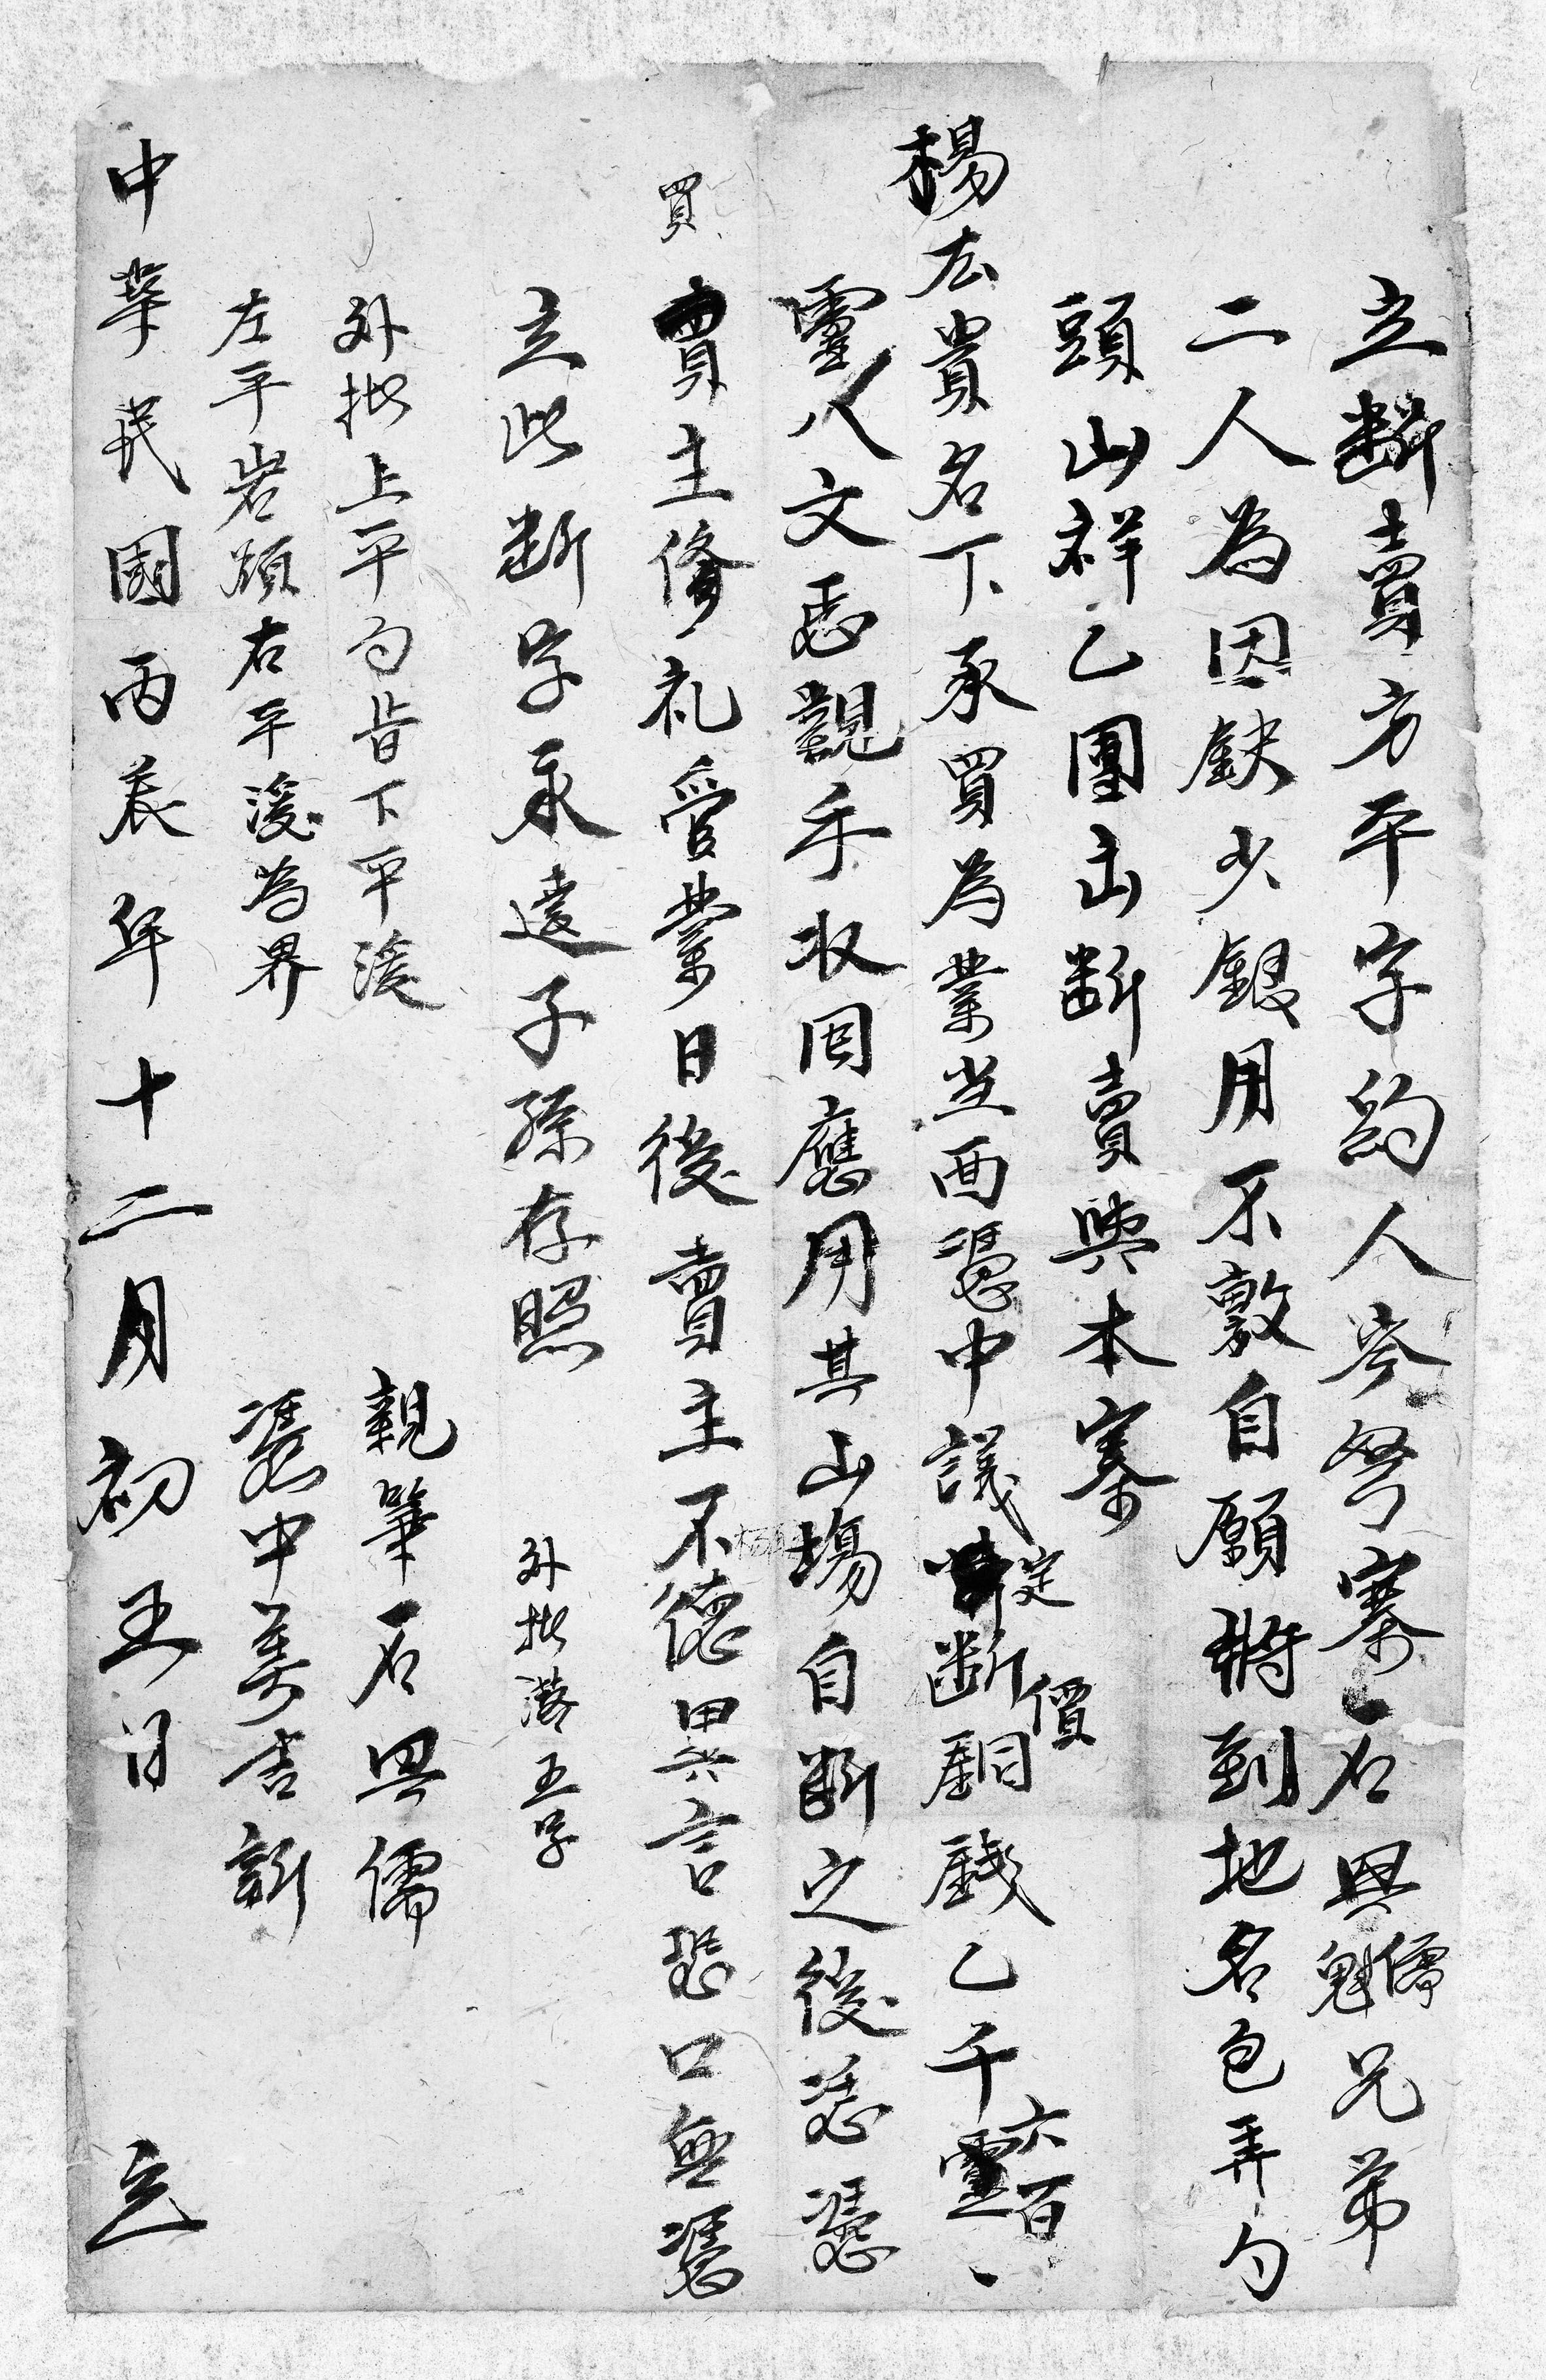 立斷賣方平字約人岑努寨石興儒魁兄弟
二人為因缺少銀用不敷自願將到地名包弄勺
頭山祥乙團出斷賣與本寨
楊左貴名下承買為業當面憑中議定斷價銅錢乙千六百
零八文悉親手收回應用其山塲自斷之後恁憑
買
賣主修礼管業日後賣主不德異言恐口無憑
立此斷字永遠子孫存照
外批添五字
外批上平勺皆下平溪
左平岩頭右平溪為界
親筆石興儒
憑中姜吉新
中華民國丙辰年十二月初五日 立